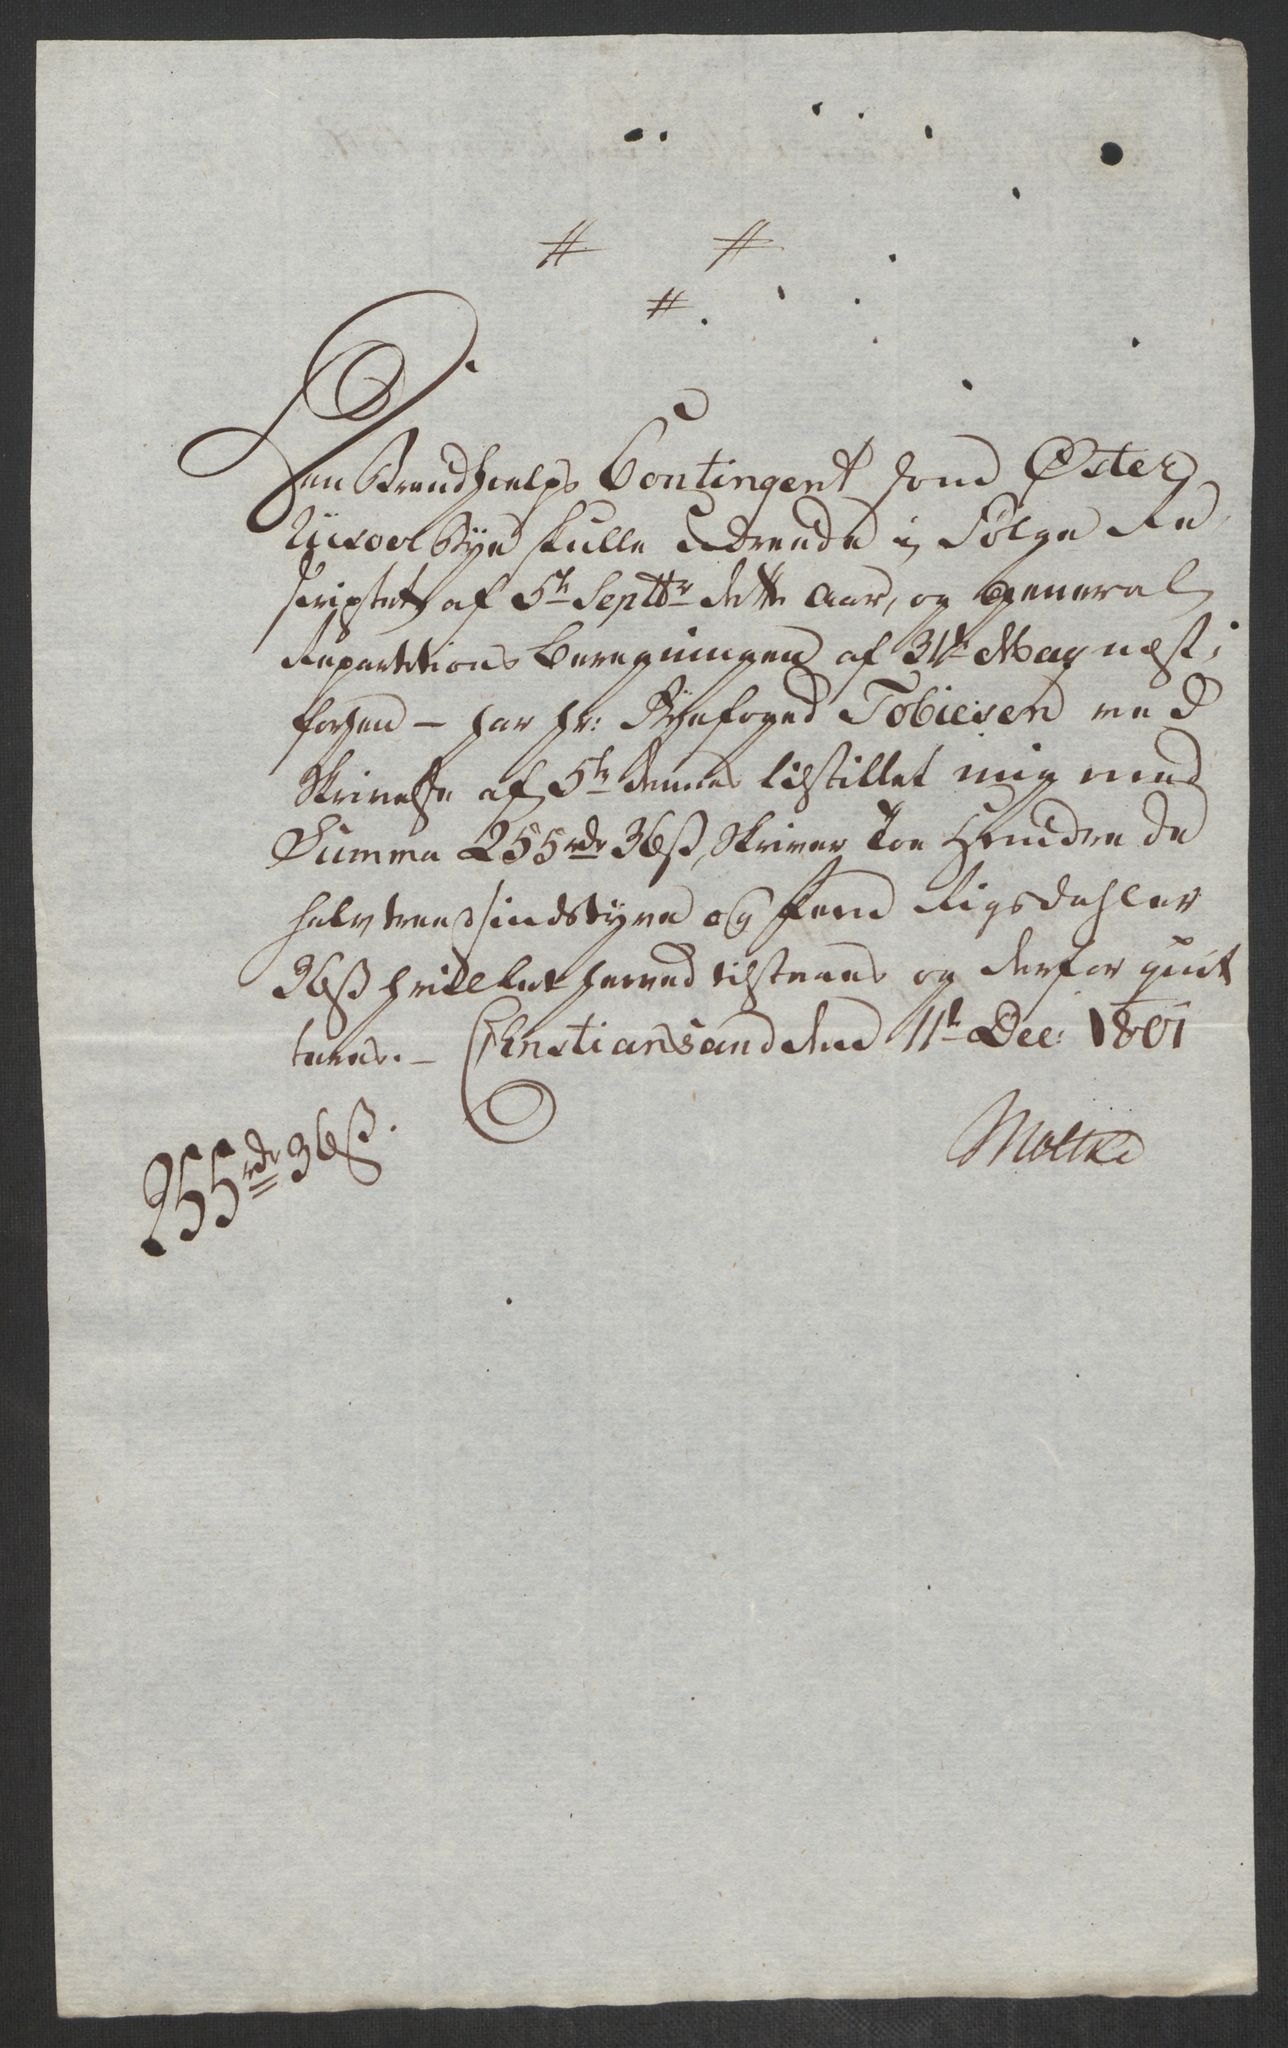 # #
#
Den Brandhielps Contingent som Øster
Riisøer Bye skulle udrede i Følge Re
scriptet af 5te Septbr dette Aar, og General
Repartitions Beregningen af 31te May næst
forhen – har Hr: Byefoged Tobiesen ved
Skrivelse af 5te dennes tilstillet mig med
Summa 255rdr 36ß, Skriver Toe Hundrede
halvtredsindstyve og fem Rigsdahler
36ß hvilket herved tilstaaes og derfor quit
teres. – Christiansand den 11te Dec: 1801
Moltke
255rdr 36ß.